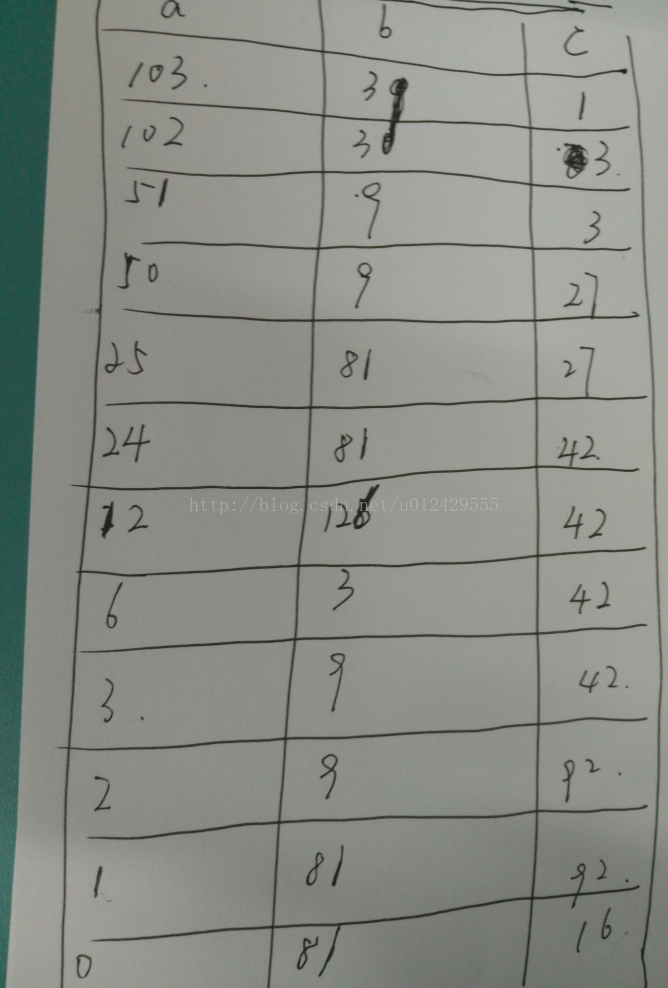 a b c
103. 39 1
102 30 3.
51 9 3
50 9 27
25 81 27
24 81 42.
12 126 42
http://blog.csdn.net/u012429555
6 3 42
3. 9 42.
2 9 92.
1 81 92.
0 81 16.